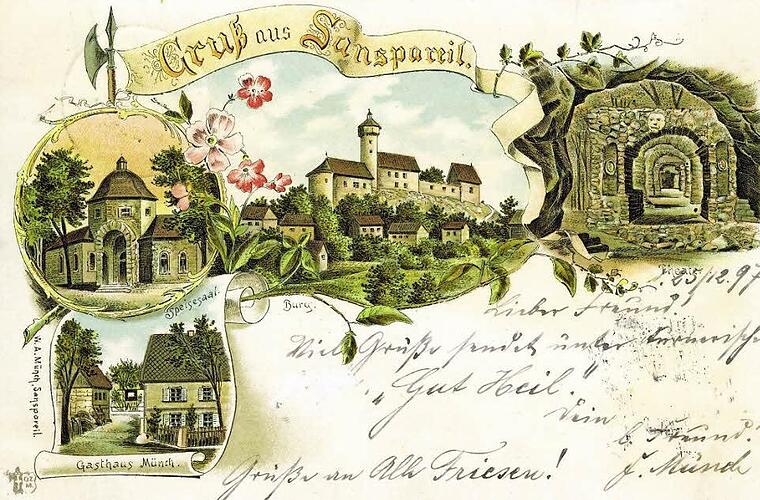 Gruß aus Sanspareil.
Speisesaal.
Burg.
Theater
W. A. Münch, Sanspareil.
Gasthaus Münch.
23/12. 97
Lieber Freund!
Viel Grüße sendet unter turnerische
„Gut Heil."
Dein
Freund!
J. Münch
Grüße an Alle Friesen!